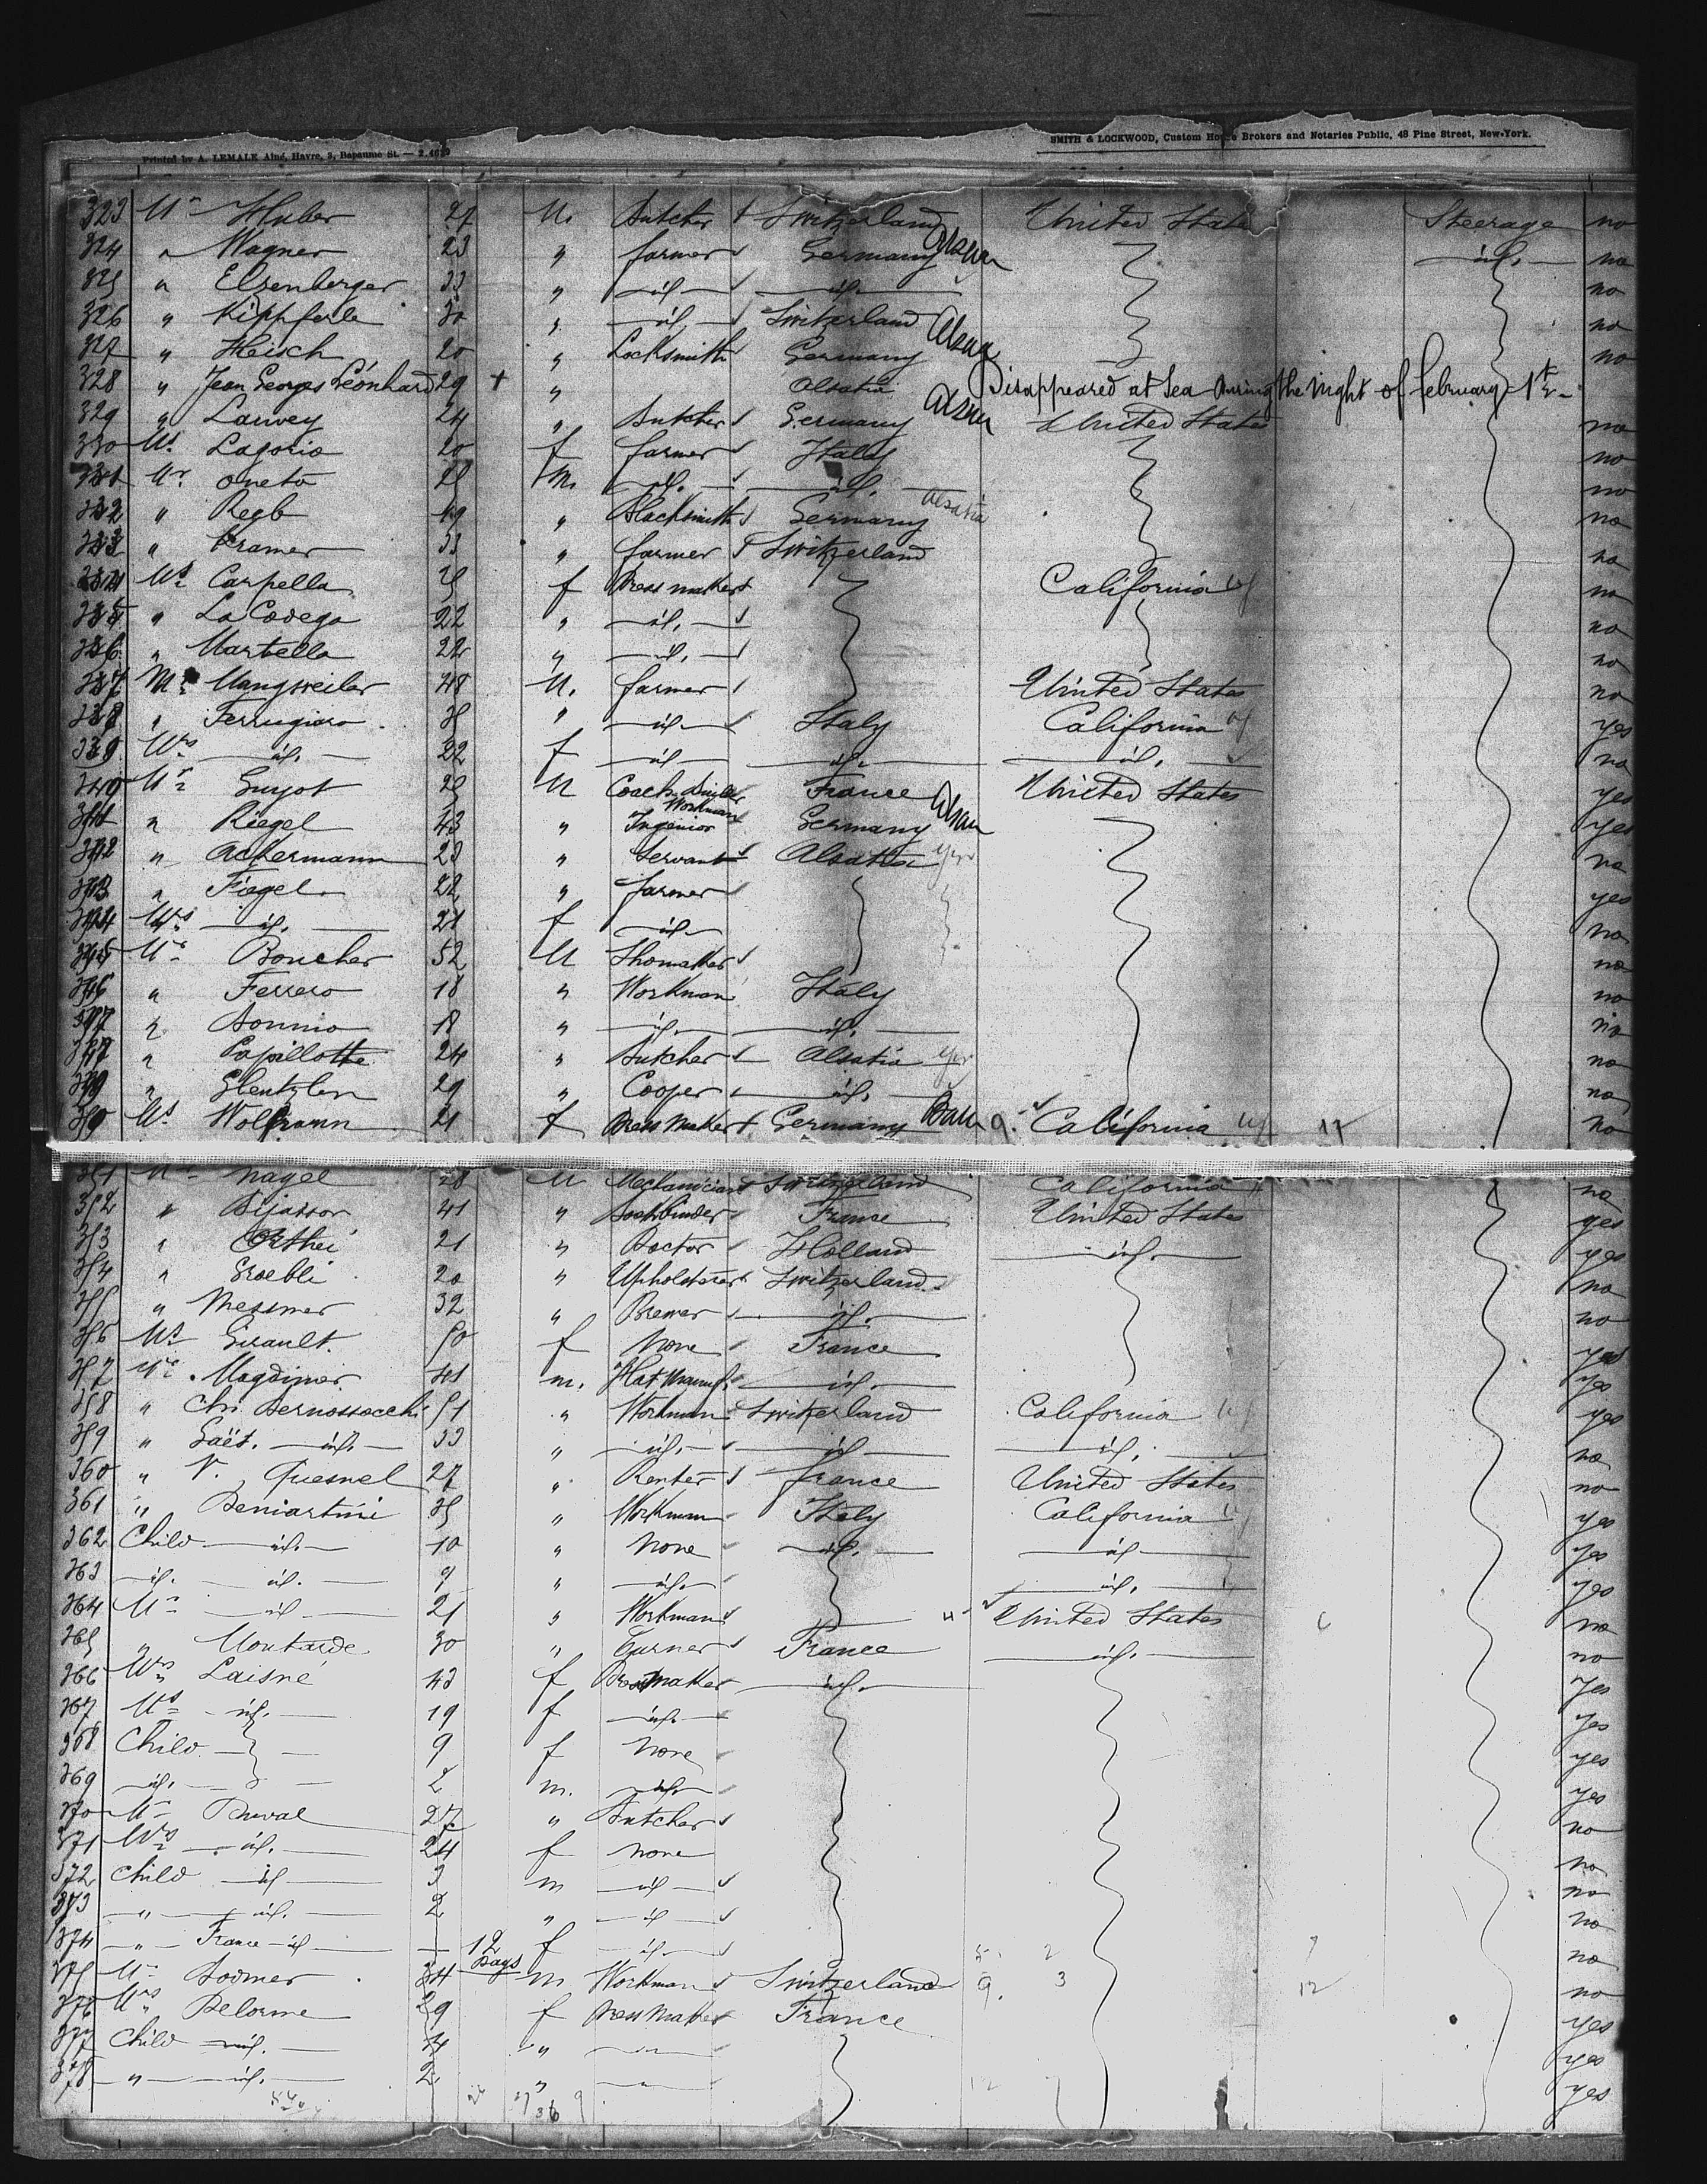 Printed by A. LEMALE Aîné, Havre, 3, Bapaume St. —
SMITH & LOCKWOOD, Custom House Brokers and Notaries Public, 48 Pine Street, New-York.
323 Mr Huber 27 M. Butcher Switzerland United States Steerage no
324 " Wagner 23 " farmer Germany Alsace — id. — no
325 " Elsenberger 33 " — id — — id. — no
326 " Kipfferle 30 " — id — Switzerland no
327 " Heisch 20 " Locksmith Germany Alsace no
328 " Jean Georges Léonhard 29 + " Alsatia Disappeared at Sea during the night of february 1st
329 " Lauvey 24 " Butcher Germany Alsace United States no
330 Ms Lagorio 20 f farmer Italy no
331 Mr Oneto 25 M. — id. — — id. — no
332 " Regb 49 " Blacksmith Germany Alsatia no
333 " Kramer 33 " farmer Switzerland no
334 Ms Carpella f Dress maker California no
335 " La Codega 22 " — id. — no
336 " Martella 22 " — id. — no
337 Mr Mangweiler 48 M. farmer United States no
338 " Ferrugiaro " — id — Italy California yes
339 Mrs — id. — 32 f — id — — id. — — id. — no
340 Mr Guyot M Coach Builder Workman France United States yes
341 " Riegel 43 " Ingenior Germany Alsace yes
342 " Ackermann 23 " Servant Alsatia no
343 " Fiegel 22 " farmer yes
344 Mrs — id. — 21 f — id — no
345 Mr Boucher 52 M Shomaker no
346 " Ferrero 18 " Workman Italy no
347 " Bonnio 18 " — id. — — id. — no
348 " Papillotte 24 " Butcher Alsatia no
349 " Glentzlen 29 " Cooper — id. — no
350 Ms Wolframm 21 f Dress Maker Germany 9. California 17 no
351 Mr Nagel 28 M Mechanician Switzerland California no
352 " Bijasson 41 " Bookbinder France United States yes
353 " Orthei 21 " Doctor Holland — id. — yes
354 " Groebli 20 " Upholsterer Switzerland no
355 " Messmer 32 " Brewer — id. — no
356 Ms Girault 50 f None France yes
357 Mr Magdinier 41 m. Hat Manuf. — id. — yes
358 " Chi Bernossocchi 51 " Workman Switzerland California yes
359 " Gaët. — id. — 33 " — id. — — id — — id. — no
360 " V. Quesnel 27 " Renter France United States no
361 " Beniartini 35 " Workman Italy California yes
362 Child — id. — 10 " None — id. — — id — yes
363 — id. — id. — 9 " — id. — — id. — yes
364 Mr — id — 21 " Workman 4 United States no
365 " Moutarde 30 " Turner France — id. — no
366 Mrs Laisné 43 f Dressmaker — id. — yes
367 Ms — id. — 19 f — id. — yes
368 Child 9 f None yes
369 — id. — 2 m. — id. — yes
370 Mr Duval 27 " Butcher no
371 Mrs — id. — 24 f None no
372 Child — id — 3 m — id — no
373 — " — id. — 2 " — id — no
374 — " — France — id — 12 Days f — id. — 2 7 no
375 Mr Bodmer 34 m Workman Switzerland 9. 3 12 no
376 Mrs Delorme 29 f Dress Maker France yes
377 Child — id. — 4 " — " — yes
378 — " — id. — 2 " — " — yes